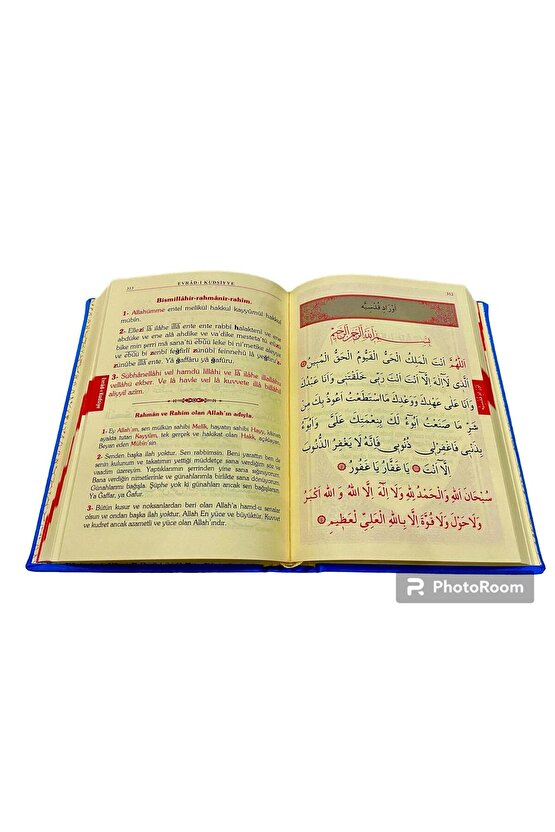 313
EVRÂD-I KUDSİYYE
Bismillâhir-rahmânir-rahîm.
1- Allahümme entel melikül hakkul kayyûmül hakkul
mübîn.
2- Ellezî lâ ilâhe illâ ente ente rabbî halaktenî ve ene
abdüke ve ene alâ ahdike ve va'dike mesteta'tü
bike min şerri mâ sana'tü ebûü leke bi ni'metike aleyye
ve ebûü bi zenbî feğfirlî zünûbî feinnehû lâ yeğfiruz
zünûbe illâ ente. Yâ ğaffâru yâ ğafûru.
3- Sübhânellâhi vel hamdü lillâhi ve lâ ilâhe illallâhü
vellâhü ekber. Ve lâ havle vel lâ kuvvete illâ billâhil
aliyyil azîm.
Rahmân ve Rahîm olan Allah'ın adıyla.
1- Ey Allah'ım, sen mülkün sahibi Melik, hayatın sahibi Hayy, kâinatı
ayakta tutan Kayyûm, tek gerçek ve hakikat olan Hakk, açıklayan
Beyan eden Mübîn'sin.
2- Senden başka ilah yoktur. Sen rabbimsin. Beni yarattın ben de
senin kulunum ve takatımın yettiği müddetçe sana verdiğim söz ve
vaadim üzereyim. Yaptıklarımın şerrinden yine sana sığınıyorum.
Bana verdiğin nimetlerinle ve günahlarımla birlikte sana dönüyorum.
Günahlarımı bağışla. Şüphe yok ki günahları ancak sen bağışlarsın.
Ya Gaffar, ya Gafur.
3- Bütün kusur ve noksanlardan beri olan Allah'a hamd-u senalar
olsun ve ondan başka ilah yoktur. Allah En yüce ve büyüktür. Kuvvet
ve kudret ancak azametli ve yüce olan Allah'ındır.
Evrad-ı Kudsiyye
312
اَوْرَادِ قُدْسِيَّه
بِسْمِ اللّٰهِ الرَّحْمٰنِ الرَّحِيمِ
اَللّٰهُمَّ اَنْتَ الْمَلِكُ الْحَيُّ الْقَيُّومُ الْحَقُّ الْمُبِينُ
اَلَّذِى لَا اِلٰهَ اِلَّا اَنْتَ اَنْتَ رَبِّى خَلَقْتَنِى وَاَنَا عَبْدُكَ
وَاَنَا عَلٰى عَهْدِكَ وَوَعْدِكَ مَااسْتَطَعْتُ اَعُوذُ بِكَ مِنْ
شَرِّ مَا صَنَعْتُ اَبُوءُ لَكَ بِنِعْمَتِكَ عَلَىَّ وَاَبُوءُ
بِذَنْبِى فَاغْفِرْلِى ذُنُوبِى فَاِنَّهُ لَا يَغْفِرُ الذُّنُوبَ
اِلَّا اَنْتَ يَا غَفَّارُ يَا غَفُورُ
سُبْحَانَ اللّٰهِ وَالْحَمْدُ لِلّٰهِ وَلَا اِلٰهَ اِلَّا اللّٰهُ وَ اللّٰهُ اَكْبَرُ
وَلَا حَوْلَ وَلَا قُوَّةَ اِلَّا بِاللّٰهِ الْعَلِىِّ الْعَظِيمِ
PhotoRoom